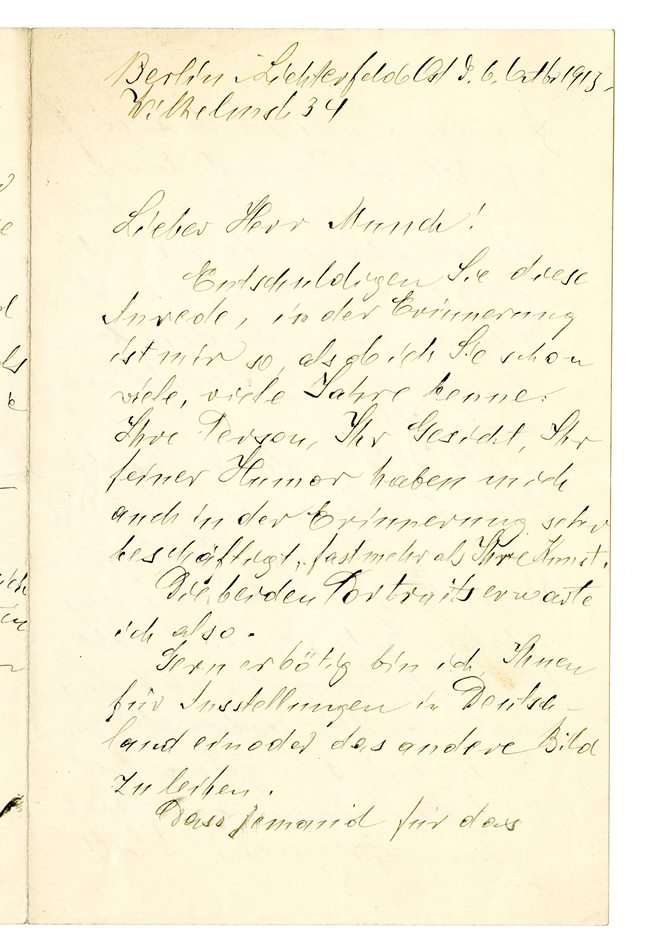 Berlin-Lichterfelde Ost d. 6. Octbr 1913,
Wilhelmst 34
Lieber Herr Munch!
Entschuldigen Sie diese
Anrede, in der Erinnerung
ist mir so, als ob ich Sie schon
viele, viele Jahre kenne.
Ihre Person, Ihr Gesicht, Ihr
feiner Humor haben mich
auch in der Erinnerung sehr
beschäftigt, fast mehr als Ihre Kunst.
Die beiden Portraits erwarte
ich also.
Gern erbötig bin ich, Ihnen
für Ausstellungen in Deutsch-
land ein oder das andere Bild
zu leihen.
Dass jemand für das